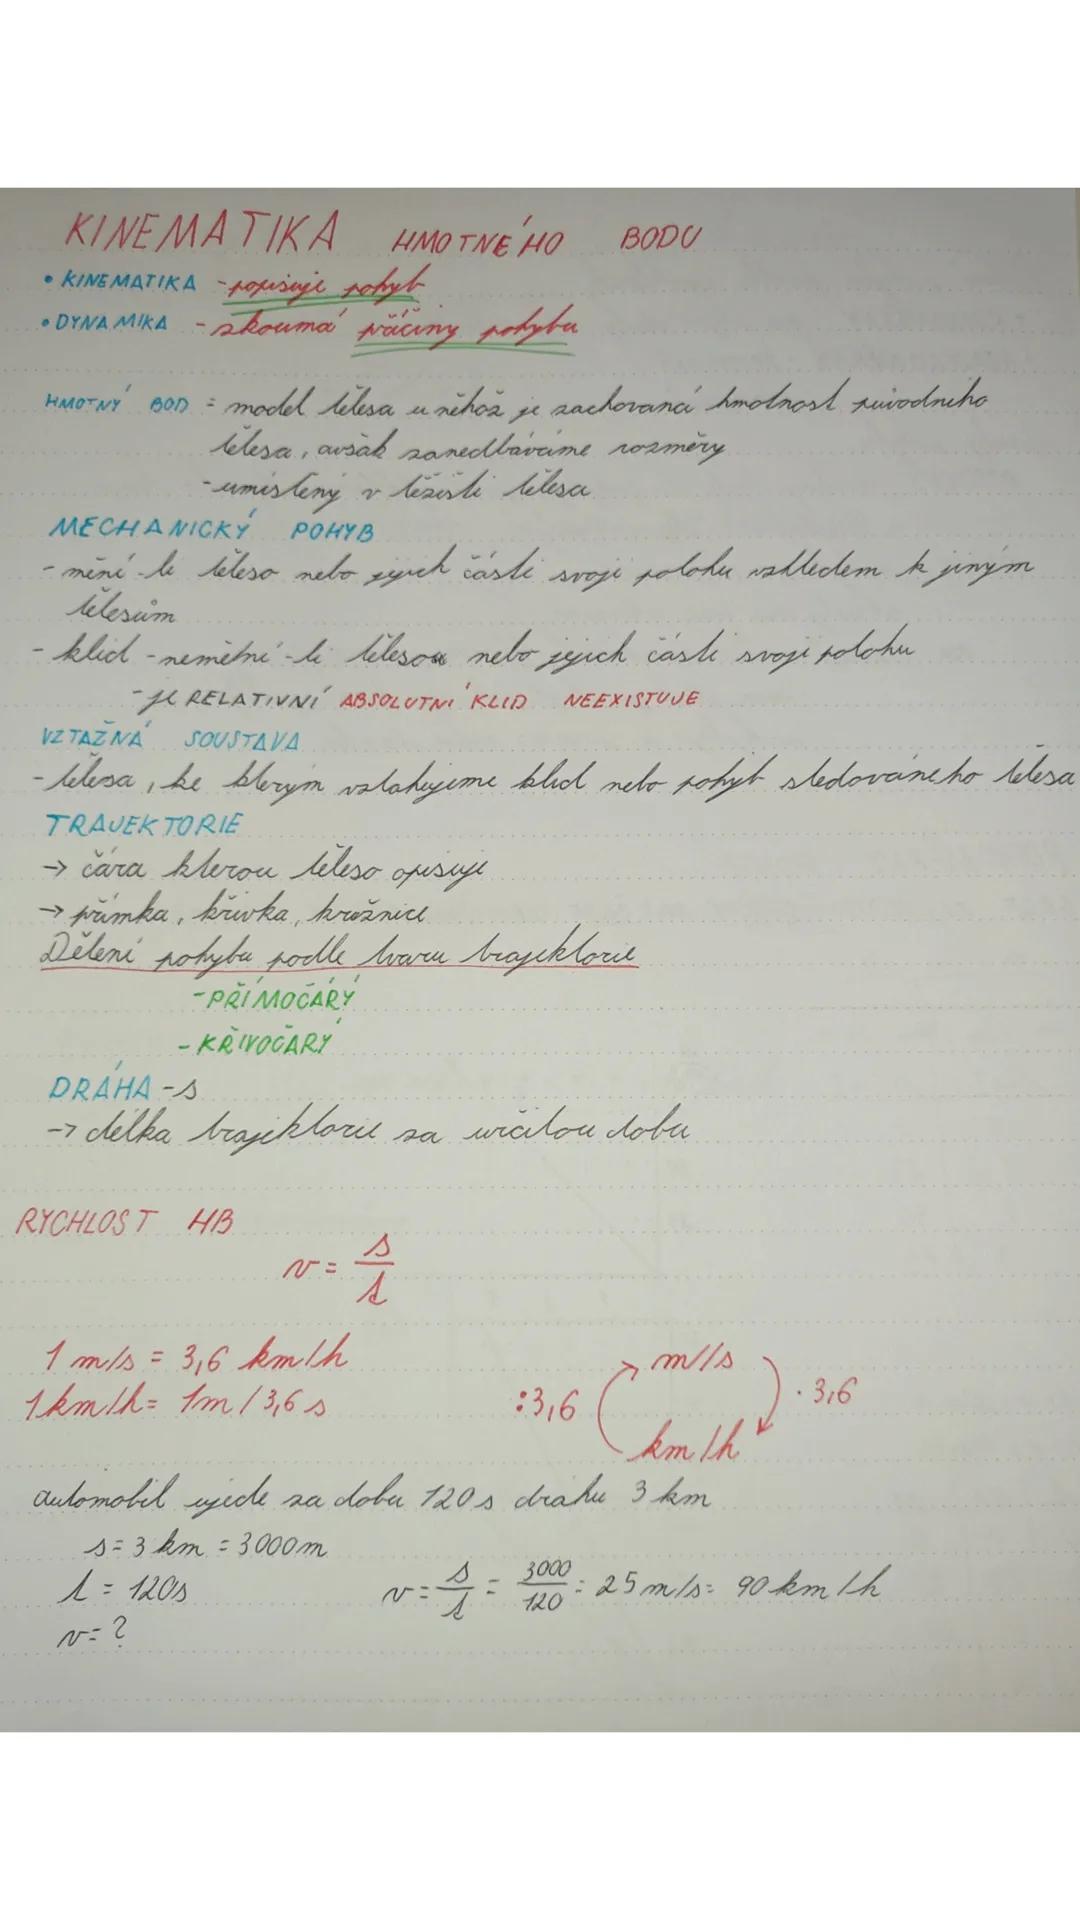 KINEMATIKA HMOTNÉHO BODU
• KINEMATIKA - popisuje pohyb
• DYNAMIKA - zkoumá příčiny pohybu
HMOTNÝ BOD = model tělesa u něhož je zachovaná hmotnost původního
tělesa, avšak zanedbáváme rozměry
- umístěný v těžišti tělesa
MECHANICKÝ POHYB
- mění-li těleso nebo jejich části svoji polohu vzhledem k jiným
tělesům
- klid - nemětní-li těleso nebo jejich části svoji polohu
- je RELATIVNÍ ABSOLUTNÍ KLID NEEXISTUJE
VZTAŽNÁ SOUSTAVA
- tělesa, ke kterým vztahujeme klid nebo pohyb sledovaného tělesa
TRAJEKTORIE
→ čára kterou těleso opisuje
→ přímka, křivka, kružnice
Dělení pohybu podle tvaru trajektorie
- PŘÍMOČARÝ
- KŘIVOČARÝ
DRÁHA - s
→ délka trajektorie za určitou dobu
RYCHLOST HB
v = s/t
1 m/s = 3,6 km/h
1 km/h = 1m / 3,6 s
:3,6 m/s · 3,6
km/h
automobil ujede za dobu 120 s dráhu 3 km
s = 3 km = 3000 m
t = 120s
v = s/t = 3000/120 = 25 m/s = 90 km/h
v = ?